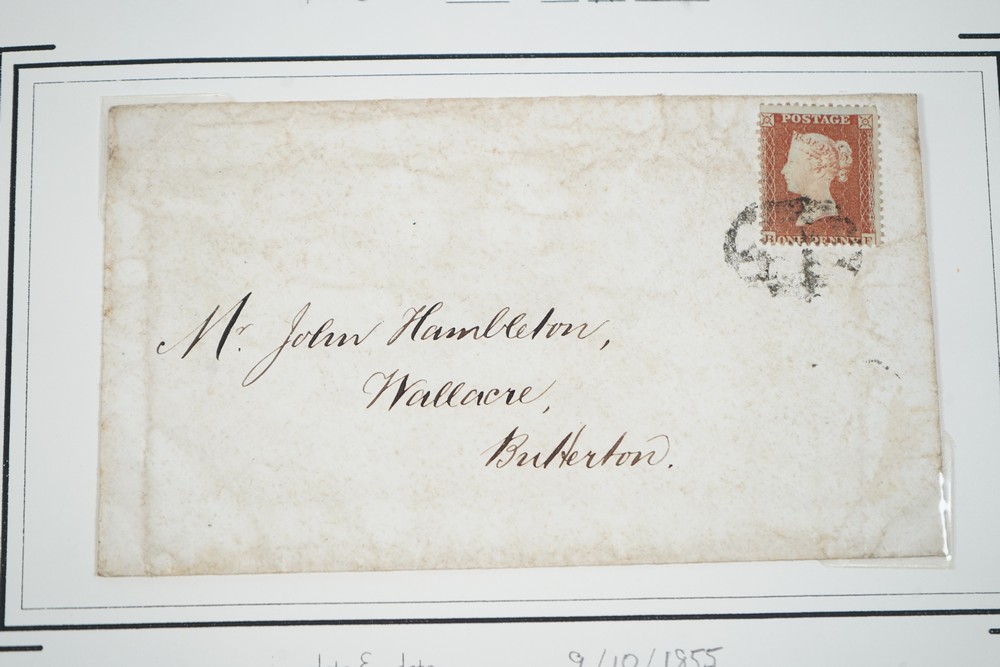 POSTAGE
B ONE PENNY F
Mr. John Hambleton,
Wallacre,
Butterton.
9/10/1855